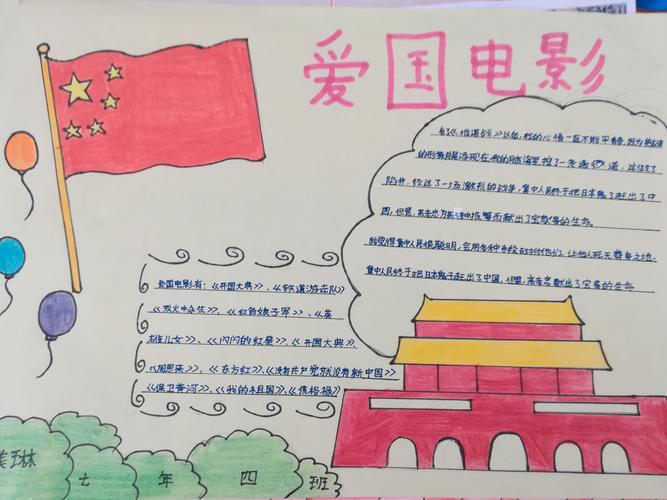 爱国电影
看《地道战》以后,我的心情一直不能平静,因为
的形象总是浮现在我的脑海里挖了一条通
陷井,经过了一场激烈的战争,冀中人民终于把日本鬼子赶出了中
国,但是,高老忠为 报警而献出了宝贵的生命。
我觉得冀中人民很聪明,会用各种 对付他们,让他人死无葬身之地,
冀中人民终于把日本鬼子赶出了中国,但是,高老忠献出了宝贵的生命
爱国电影有:《开国大典》,《铁道游击队》
《烈火中永生》,《红色娘子军》、《英
雄儿女》、《闪闪的红星》,《开国大典》,
《周恩来》,《东方红》,《没有共产党就没有新中国》
《保卫黄河》,《我的祖国》,《焦裕禄》
琳
七年四班